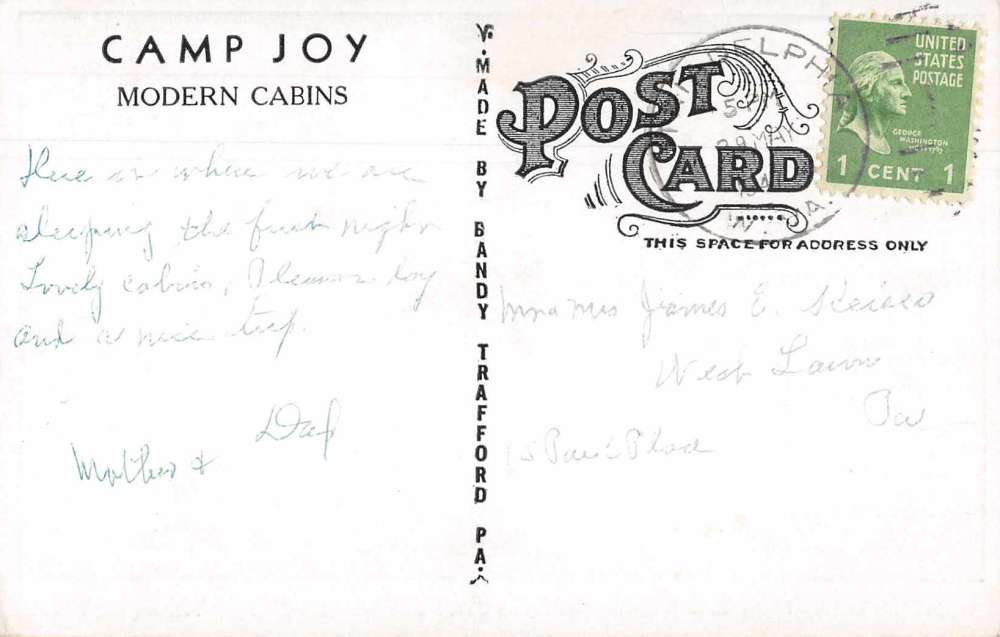 CAMP JOY
MODERN CABINS
Here is where we are
sleeping the first night
Lovely cabins, Pleasant day
and a nice trip.
Dad
Mother &
V. MADE BY BANDY TRAFFORD PA.
POST
CARD
THIS SPACE FOR ADDRESS ONLY
UNITED
STATES
POSTAGE
GEORGE
WASHINGTON
1 CENT 1
PHILADELPHIA
W. VA.
Mr a Mrs James E.
West Lawn
Pa
Place